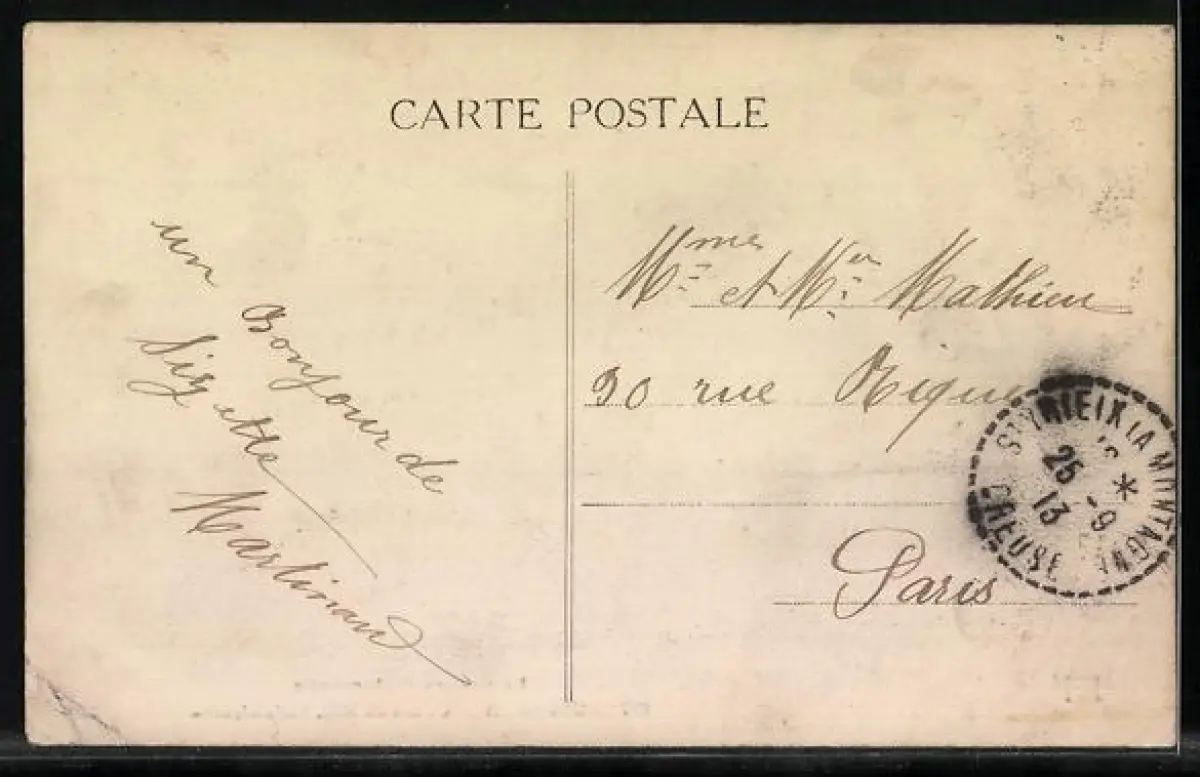 CARTE POSTALE
un Bonjour de
Lizette
Martinaud
Mmes et Mr Mathieu
30 rue Riquet
Paris
ST YRIEIX LA MONTAGNE
25 -9
13
CREUSE